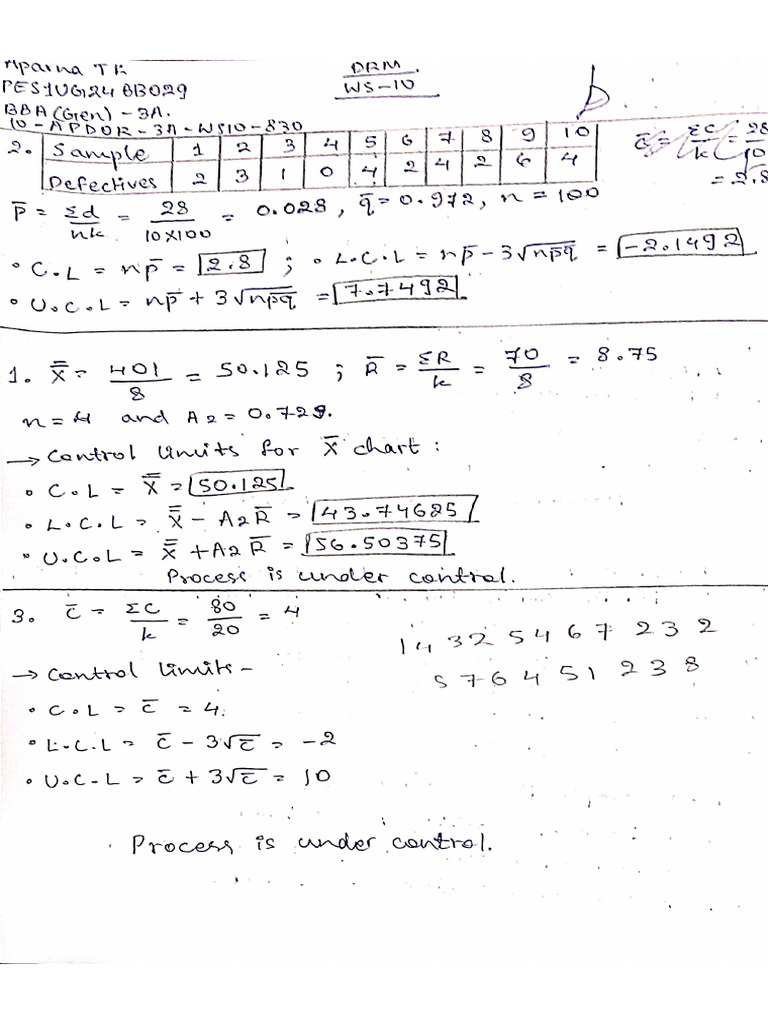 Aparna T K
DRM
PES1UG24BB029
WS-10
BBA(Gen) - 3A.
10-APDOR-3A-WS10-830
2. Sample 1 2 3 4 5 6 7 8 9 10
Defectives 2 3 1 0 4 2 4 2 6 4
c̄ = Σc/k = 28/10 = 2.8
p̄ = Σd/nk = 28/10×100 = 0.028, q̄ = 0.972, n = 100
• C.L = np̄ = 2.8 ; • L.C.L = np̄ - 3√np̄q̄ = -2.1492
• U.C.L = np̄ + 3√np̄q̄ = 7.7492
1. x̿ = 401/8 = 50.125 ; R̄ = ΣR/k = 70/8 = 8.75
n = 4 and A2 = 0.729.
→ Control limits for x̄ chart :
• C.L = x̿ = 50.125
• L.C.L = x̿ - A2R̄ = 43.74625
• U.C.L = x̿ + A2R̄ = 56.50375
Process is under control.
3. c̄ = ΣC/k = 80/20 = 4
1 4 3 2 5 4 6 7 2 3 2
5 7 6 4 5 1 2 3 8
→ Control limits -
• C.L = c̄ = 4.
• L.C.L = c̄ - 3√c̄ = -2
• U.C.L = c̄ + 3√c̄ = 10
Process is under control.